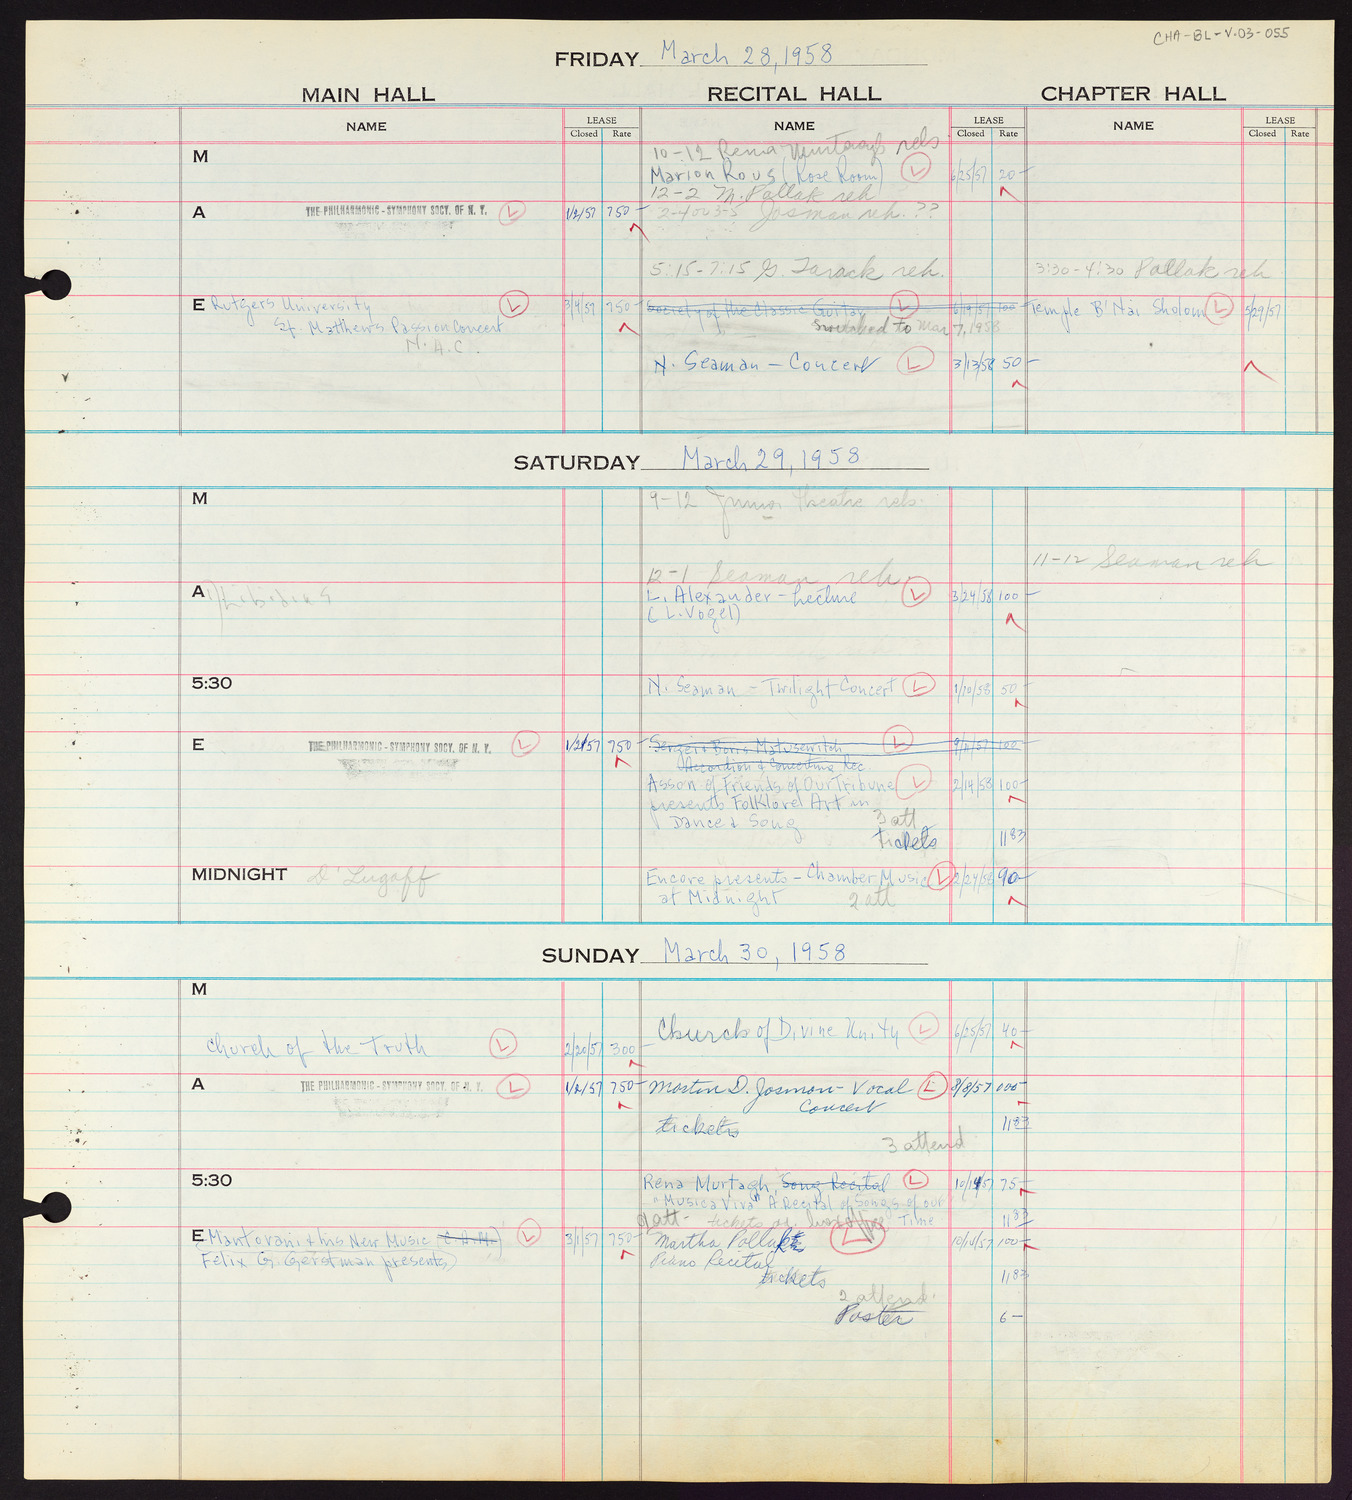 CHA-BL-V.03-055
FRIDAY March 28, 1958
MAIN HALL RECITAL HALL CHAPTER HALL
NAME LEASE Closed Rate NAME LEASE Closed Rate NAME LEASE Closed Rate
M 10-12 Rena Murtagh reh
Marion Rous (Rose Room) L 6/25/57 20-
12-2 M. Pollak reh
A THE PHILHARMONIC-SYMPHONY SOCY. OF N. Y. L 1/2/57 750- 2-4 or 3-5 Josman reh. ??
5:15-7:15 G. Tarack reh. 3:30-4:30 Pollak reh
E Rutgers University L 3/4/57 750- Society of the Classic Guitar L 6/19/57 100- Temple B'Nai Sholom L 5/29/57
St. Matthews Passion Concert switched to Mar 7, 1958
N.A.C.
N. Seaman - Concert L 3/13/58 50-
SATURDAY March 29, 1958
M 9-12 Junior Theatre reh.
11-12 Seaman reh
12-1 Seaman reh
A L. Alexander - Lecture L 3/24/58 100-
(L. Vogel)
5:30 N. Seaman - Twilight Concert L 1/10/58 50-
E THE PHILHARMONIC-SYMPHONY SOCY. OF N. Y. L 1/2/57 750- Sergei & Boris Matusewitch L 9/11/57 100-
Accordion & Concertina Rec.
Assn of Friends of Our Tribune L 2/14/58 100-
presents Folklore Art in
Dance & Song 3 att
tickets 11 83
MIDNIGHT D'Lugoff Encore presents - Chamber Music L 2/24/58 90-
at Midnight 2 att
SUNDAY March 30, 1958
M
Church of Divine Unity L 6/25/57 40-
Church of the Truth L 2/20/57 300-
A THE PHILHARMONIC-SYMPHONY SOCY. OF N. Y. L 1/2/57 750- Morton D. Josman - Vocal L 8/8/57 100-
Concert
tickets 11 83
3 attend
5:30 Rena Murtagh, Song Recital L 10/14/57 75-
"Musica Viva" A Recital of Songs of our
att- tickets Time 11 83
E Mantovani & his New Music (C.A.M.) L 3/1/57 750- Martha Pollak L 10/14/57 100-
Felix G. Gerstman presents) Piano Recital
tickets 11 83
2 attend.
Poster 6-